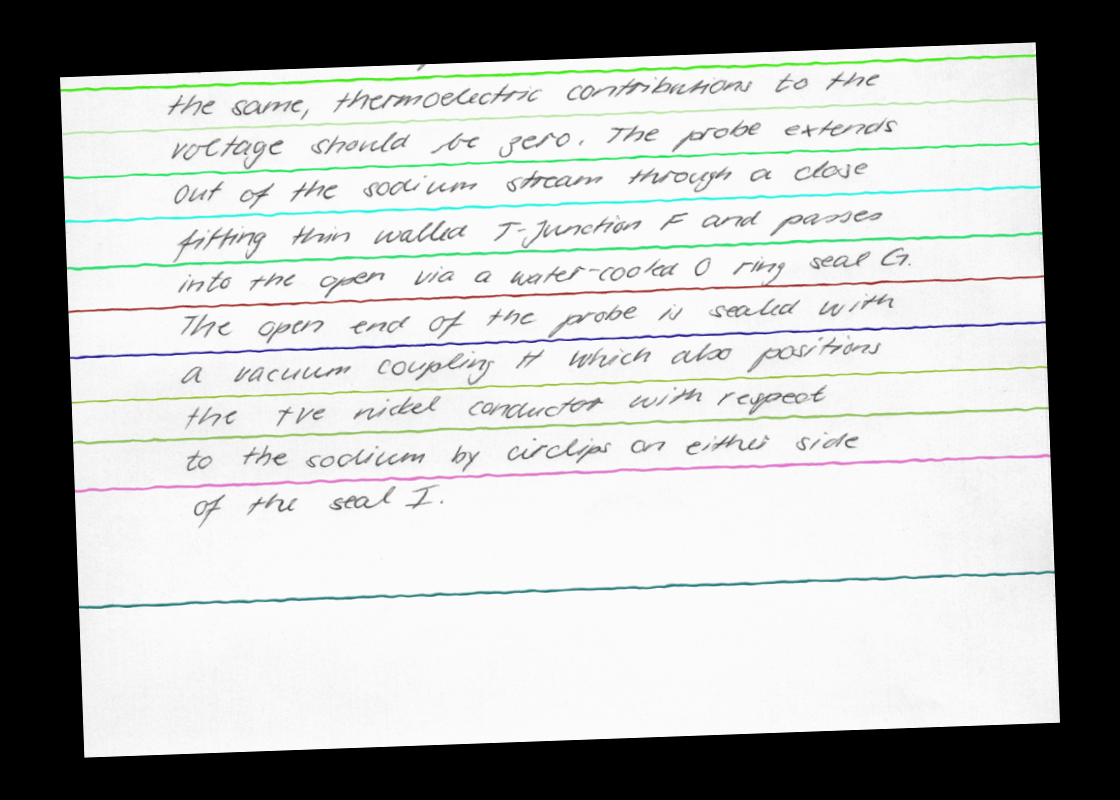 the same, thermoelectric contributions to the
voltage should be zero. The probe extends
out of the sodium stream through a close
fitting thin walled T-Junction F and passes
into the open via a water-cooled O ring seal G.
The open end of the probe is sealed with
a vacuum coupling H which also positions
the +ve nickel conductor with respect
to the sodium by circlips on either side
of the seal I.